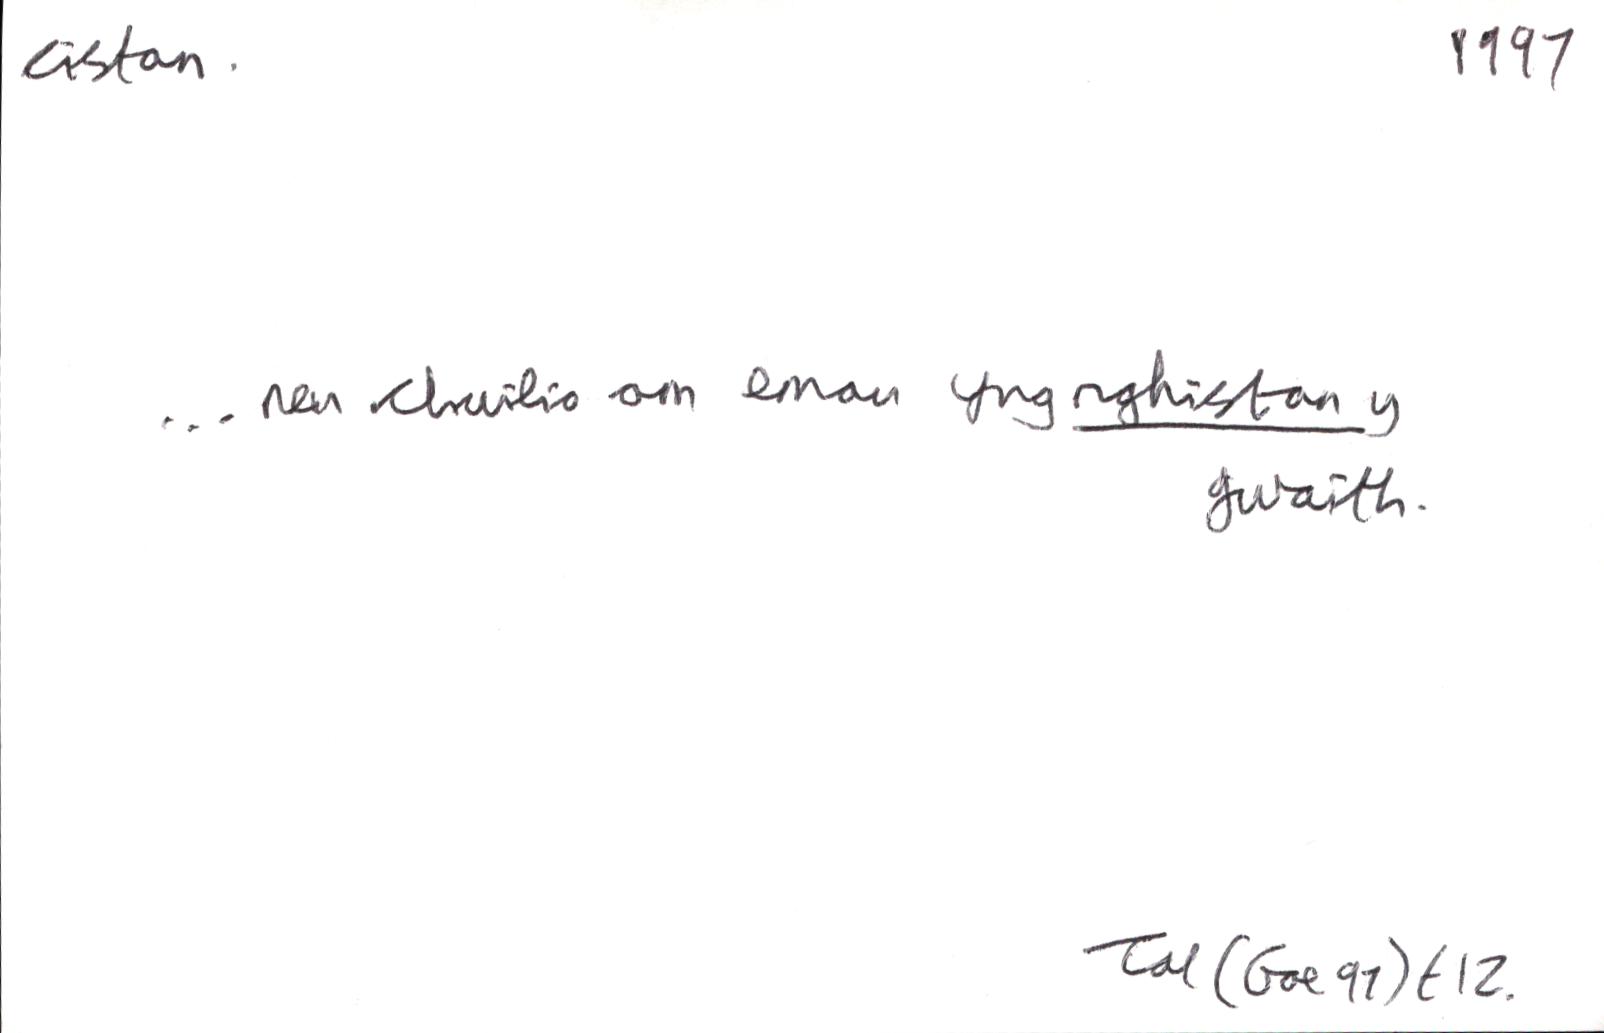 cistan. 1997
... neu chwilio am emau yng nghistan y
gwaith.
Tal (Gae 97) t 12.